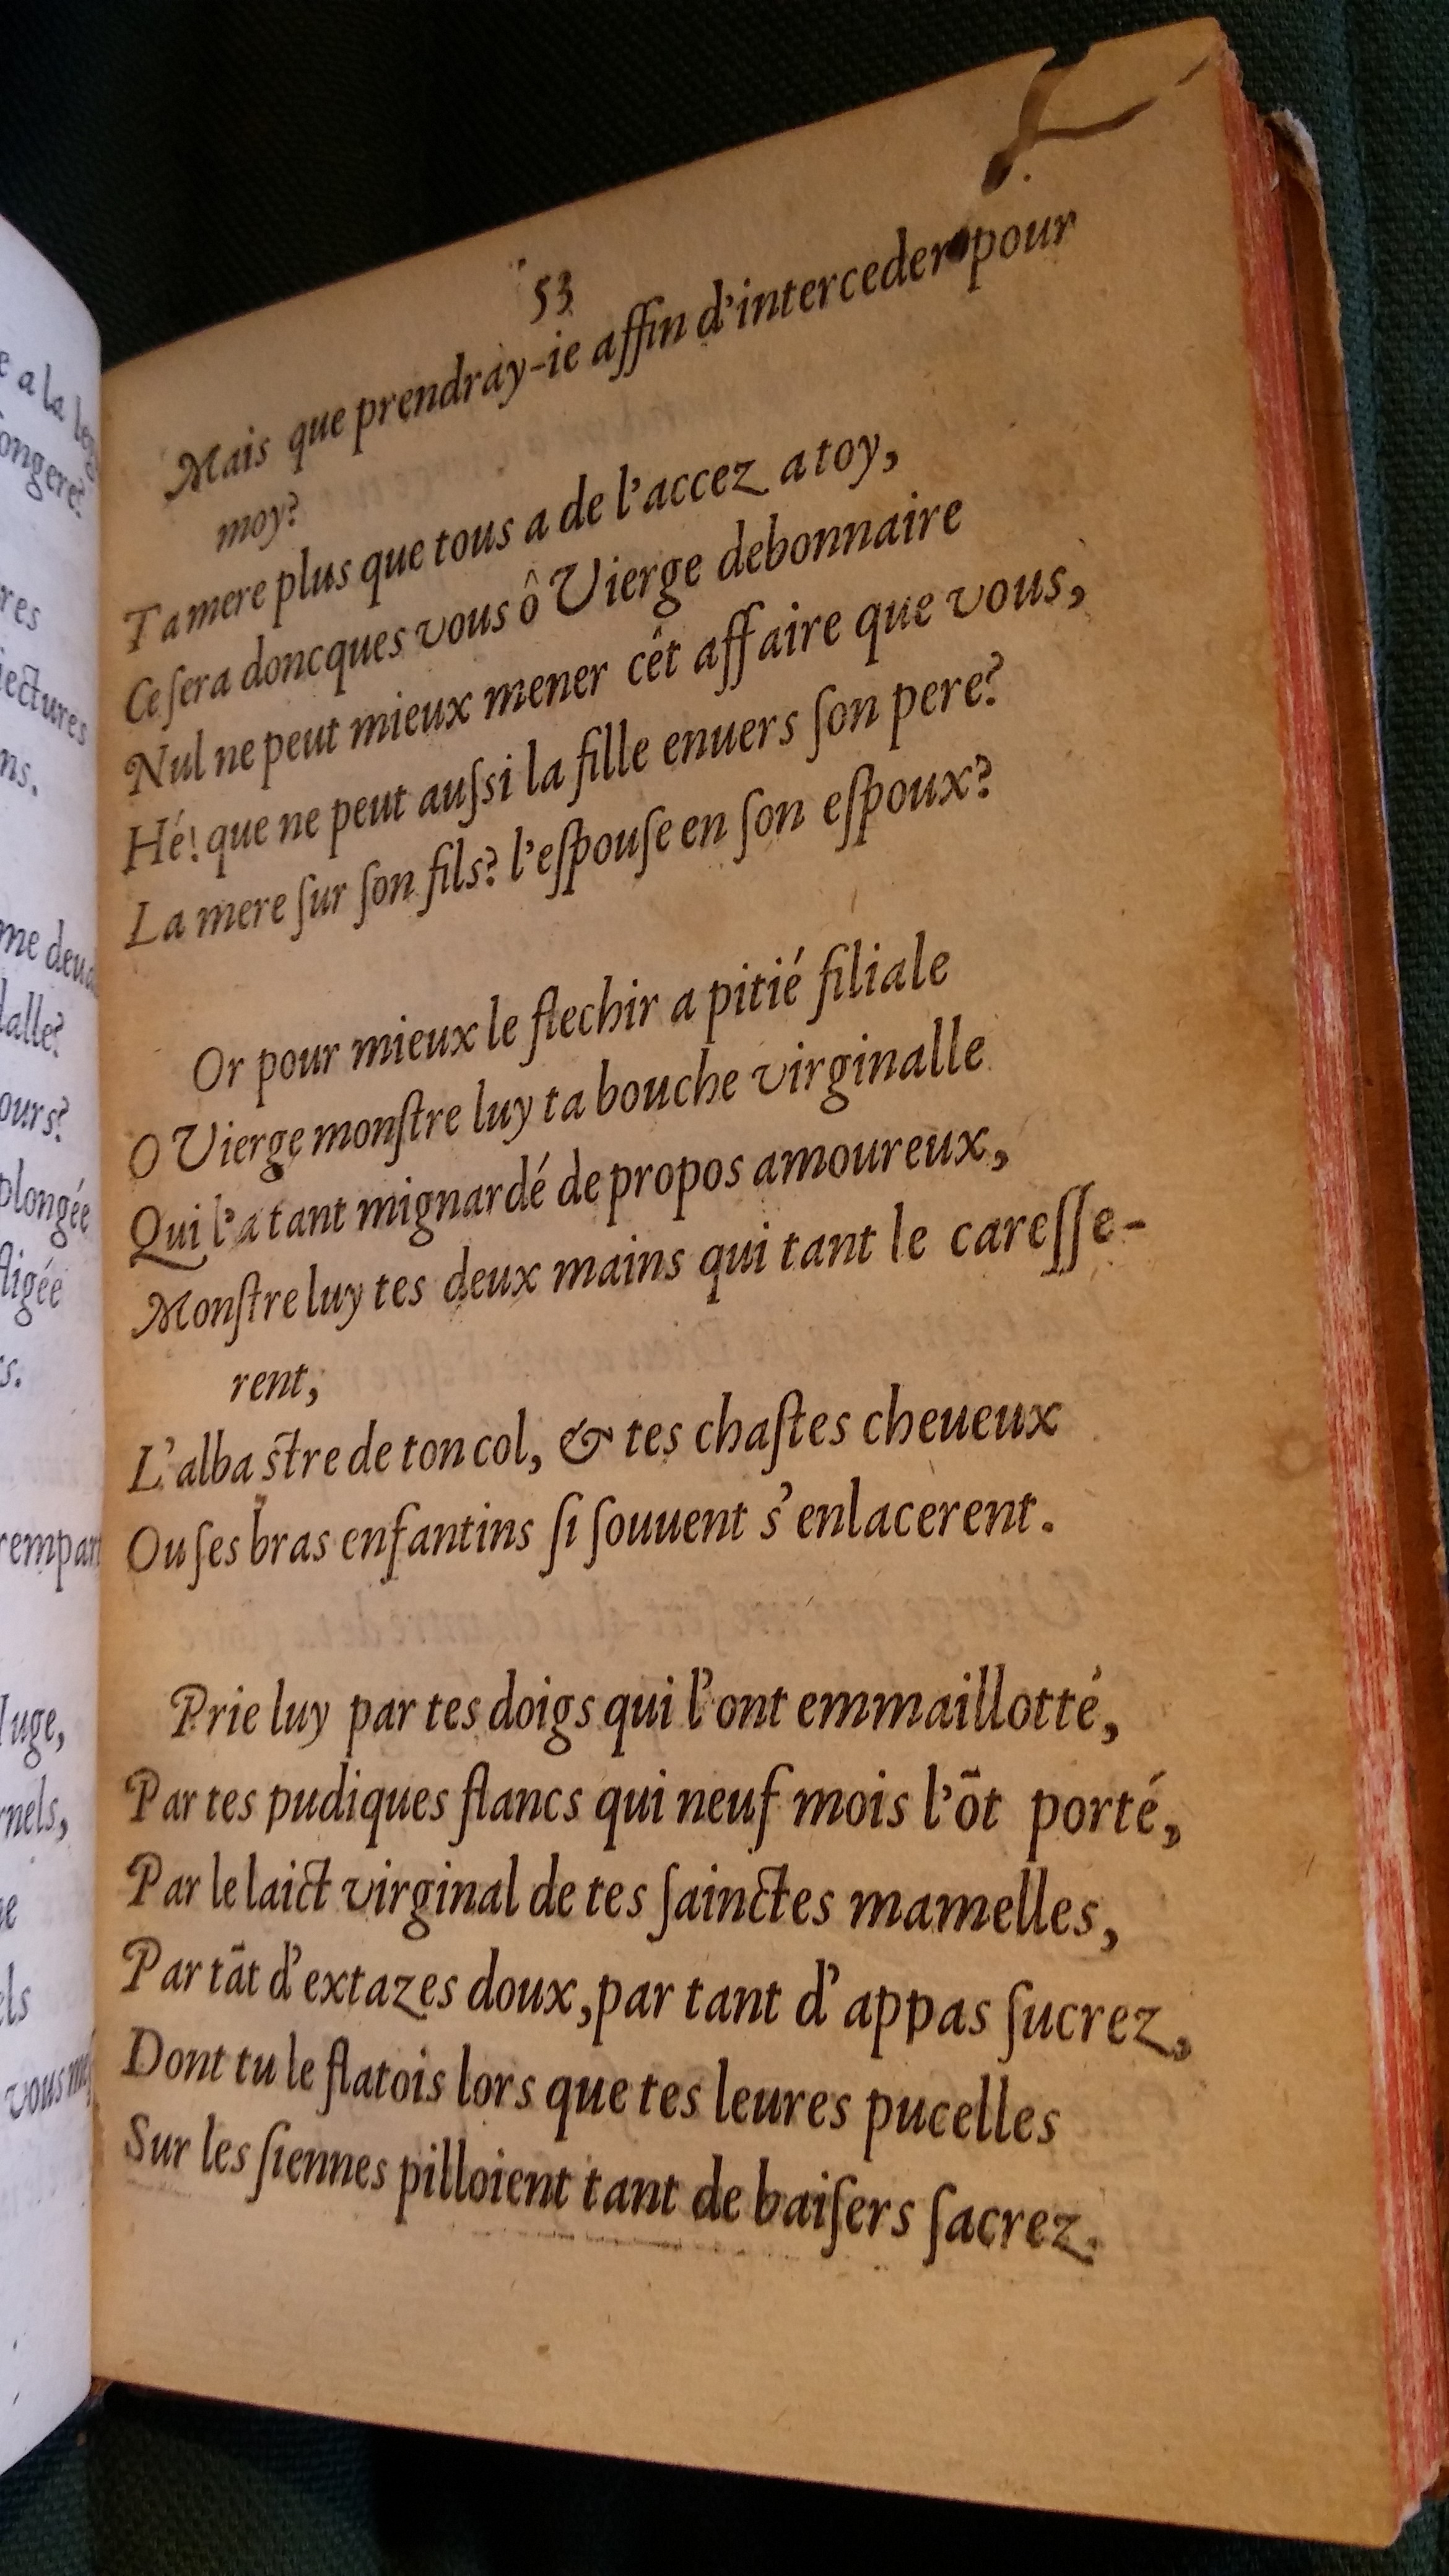 e a la
ongere?
res
iectures
ns.
me
lalle?
ours?
plongée
fligée
s.
rempart
luge,
rnels,
e
els
vous
53
Mais que prendray-ie affin d'interceder pour
moy?
Ta mere plus que tous a de l'accez a toy,
Ce ſera doncques vous ô Vierge debonnaire
Nul ne peut mieux mener cêt affaire que vous,
Hé! que ne peut auſsi la fille enuers ſon pere?
La mere ſur ſon fils? l'eſpouſe en ſon eſpoux?
Or pour mieux le flechir a pitié filiale
O Vierge monſtre luy ta bouche virginalle
Qui l'a tant mignardé de propos amoureux,
Monſtre luy tes deux mains qui tant le careſſe-
rent,
L'albaſtre de ton col, & tes chaſtes cheueux
Ou ſes bras enfantins ſi ſouuent s'enlacerent.
Prie luy par tes doigs qui l'ont emmaillotté,
Par tes pudiques flancs qui neuf mois l'õt porté,
Par le laict virginal de tes ſainctes mamelles,
Par tãt d'extazes doux, par tant d'appas ſucrez,
Dont tu le flatois lors que tes leures pucelles
Sur les ſiennes pilloient tant de baiſers ſacrez.